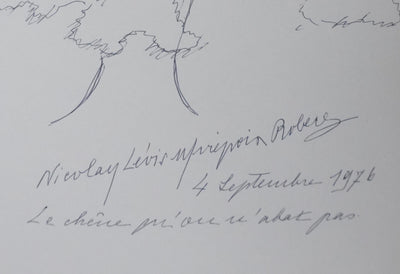 Nicolay Lévis Mirepoix Roberez
4 Septembre 1976
Le chêne qu'on n'abat pas